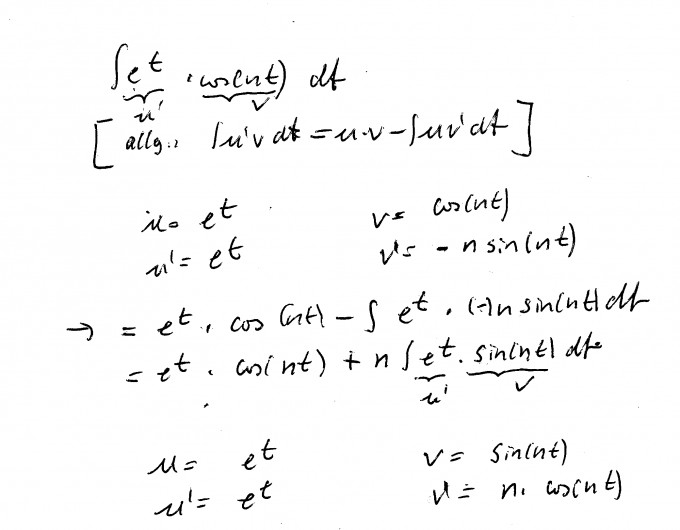 ∫e^t · cos(nt) dt
u' v
[allg.: ∫u'v dt = u·v - ∫uv' dt]
u = e^t v = cos(nt)
u' = e^t v' = - n sin(nt)
→ = e^t · cos(nt) - ∫ e^t · (-)n sin(nt) dt
= e^t · cos(nt) + n ∫ e^t · sin(nt) dt
u' v
u = e^t v = sin(nt)
u' = e^t v' = n · cos(nt)